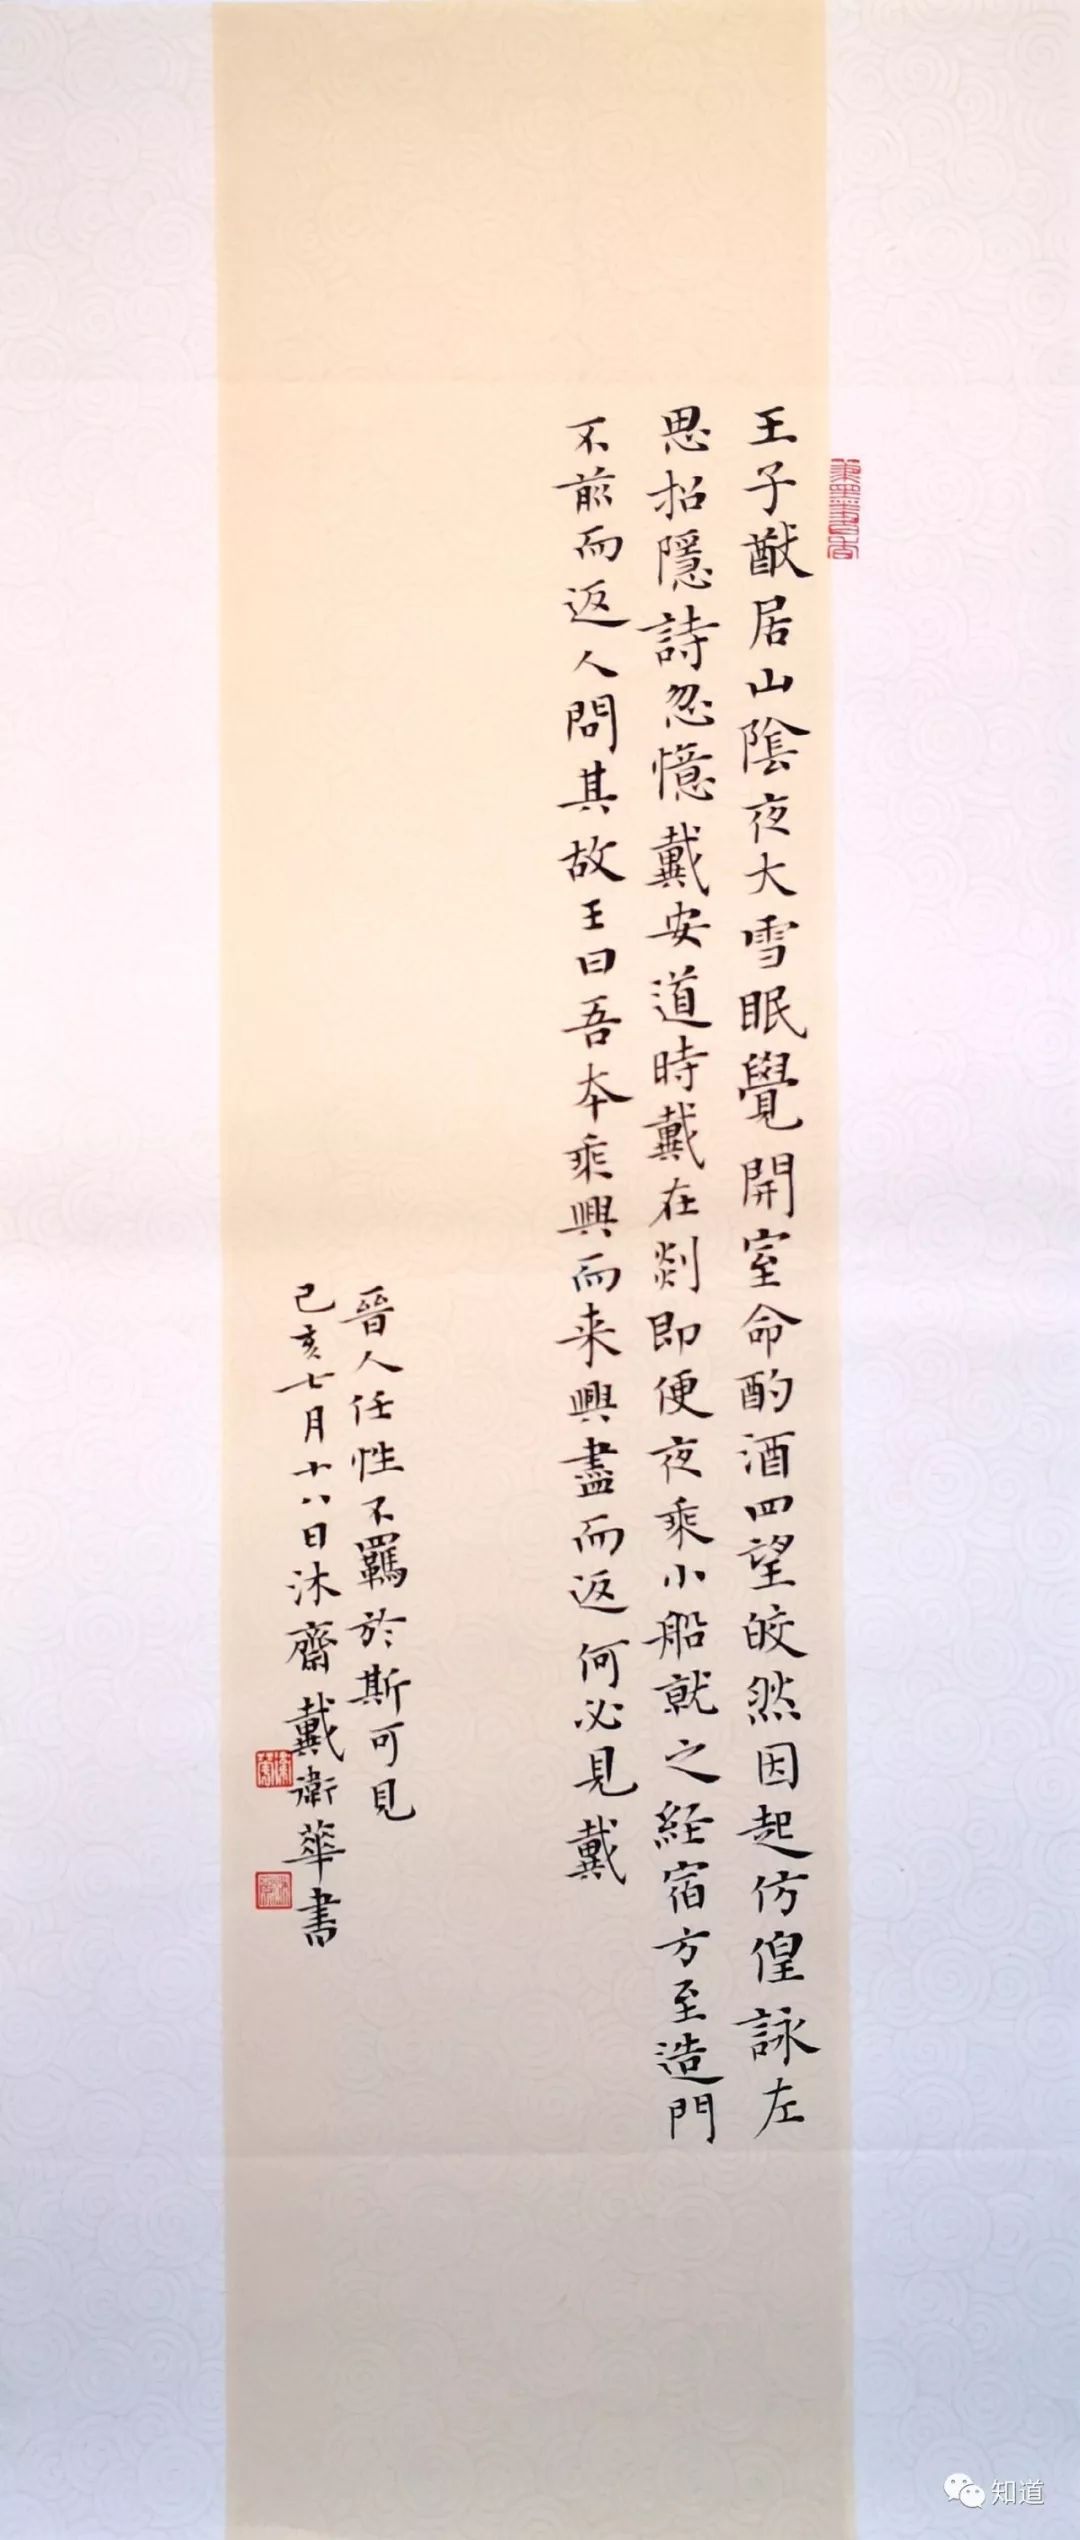 王子猷居山陰夜大雪眠覺開室命酌酒四望皎然因起仿偟詠左
思招隱詩忽憶戴安道時戴在剡即便夜乘小船就之経宿方至造門
不前而返人問其故王曰吾本乘興而来興盡而返何必見戴
晉人任性不羈於斯可見
己亥七月十八日沐齋戴衛華書
知道